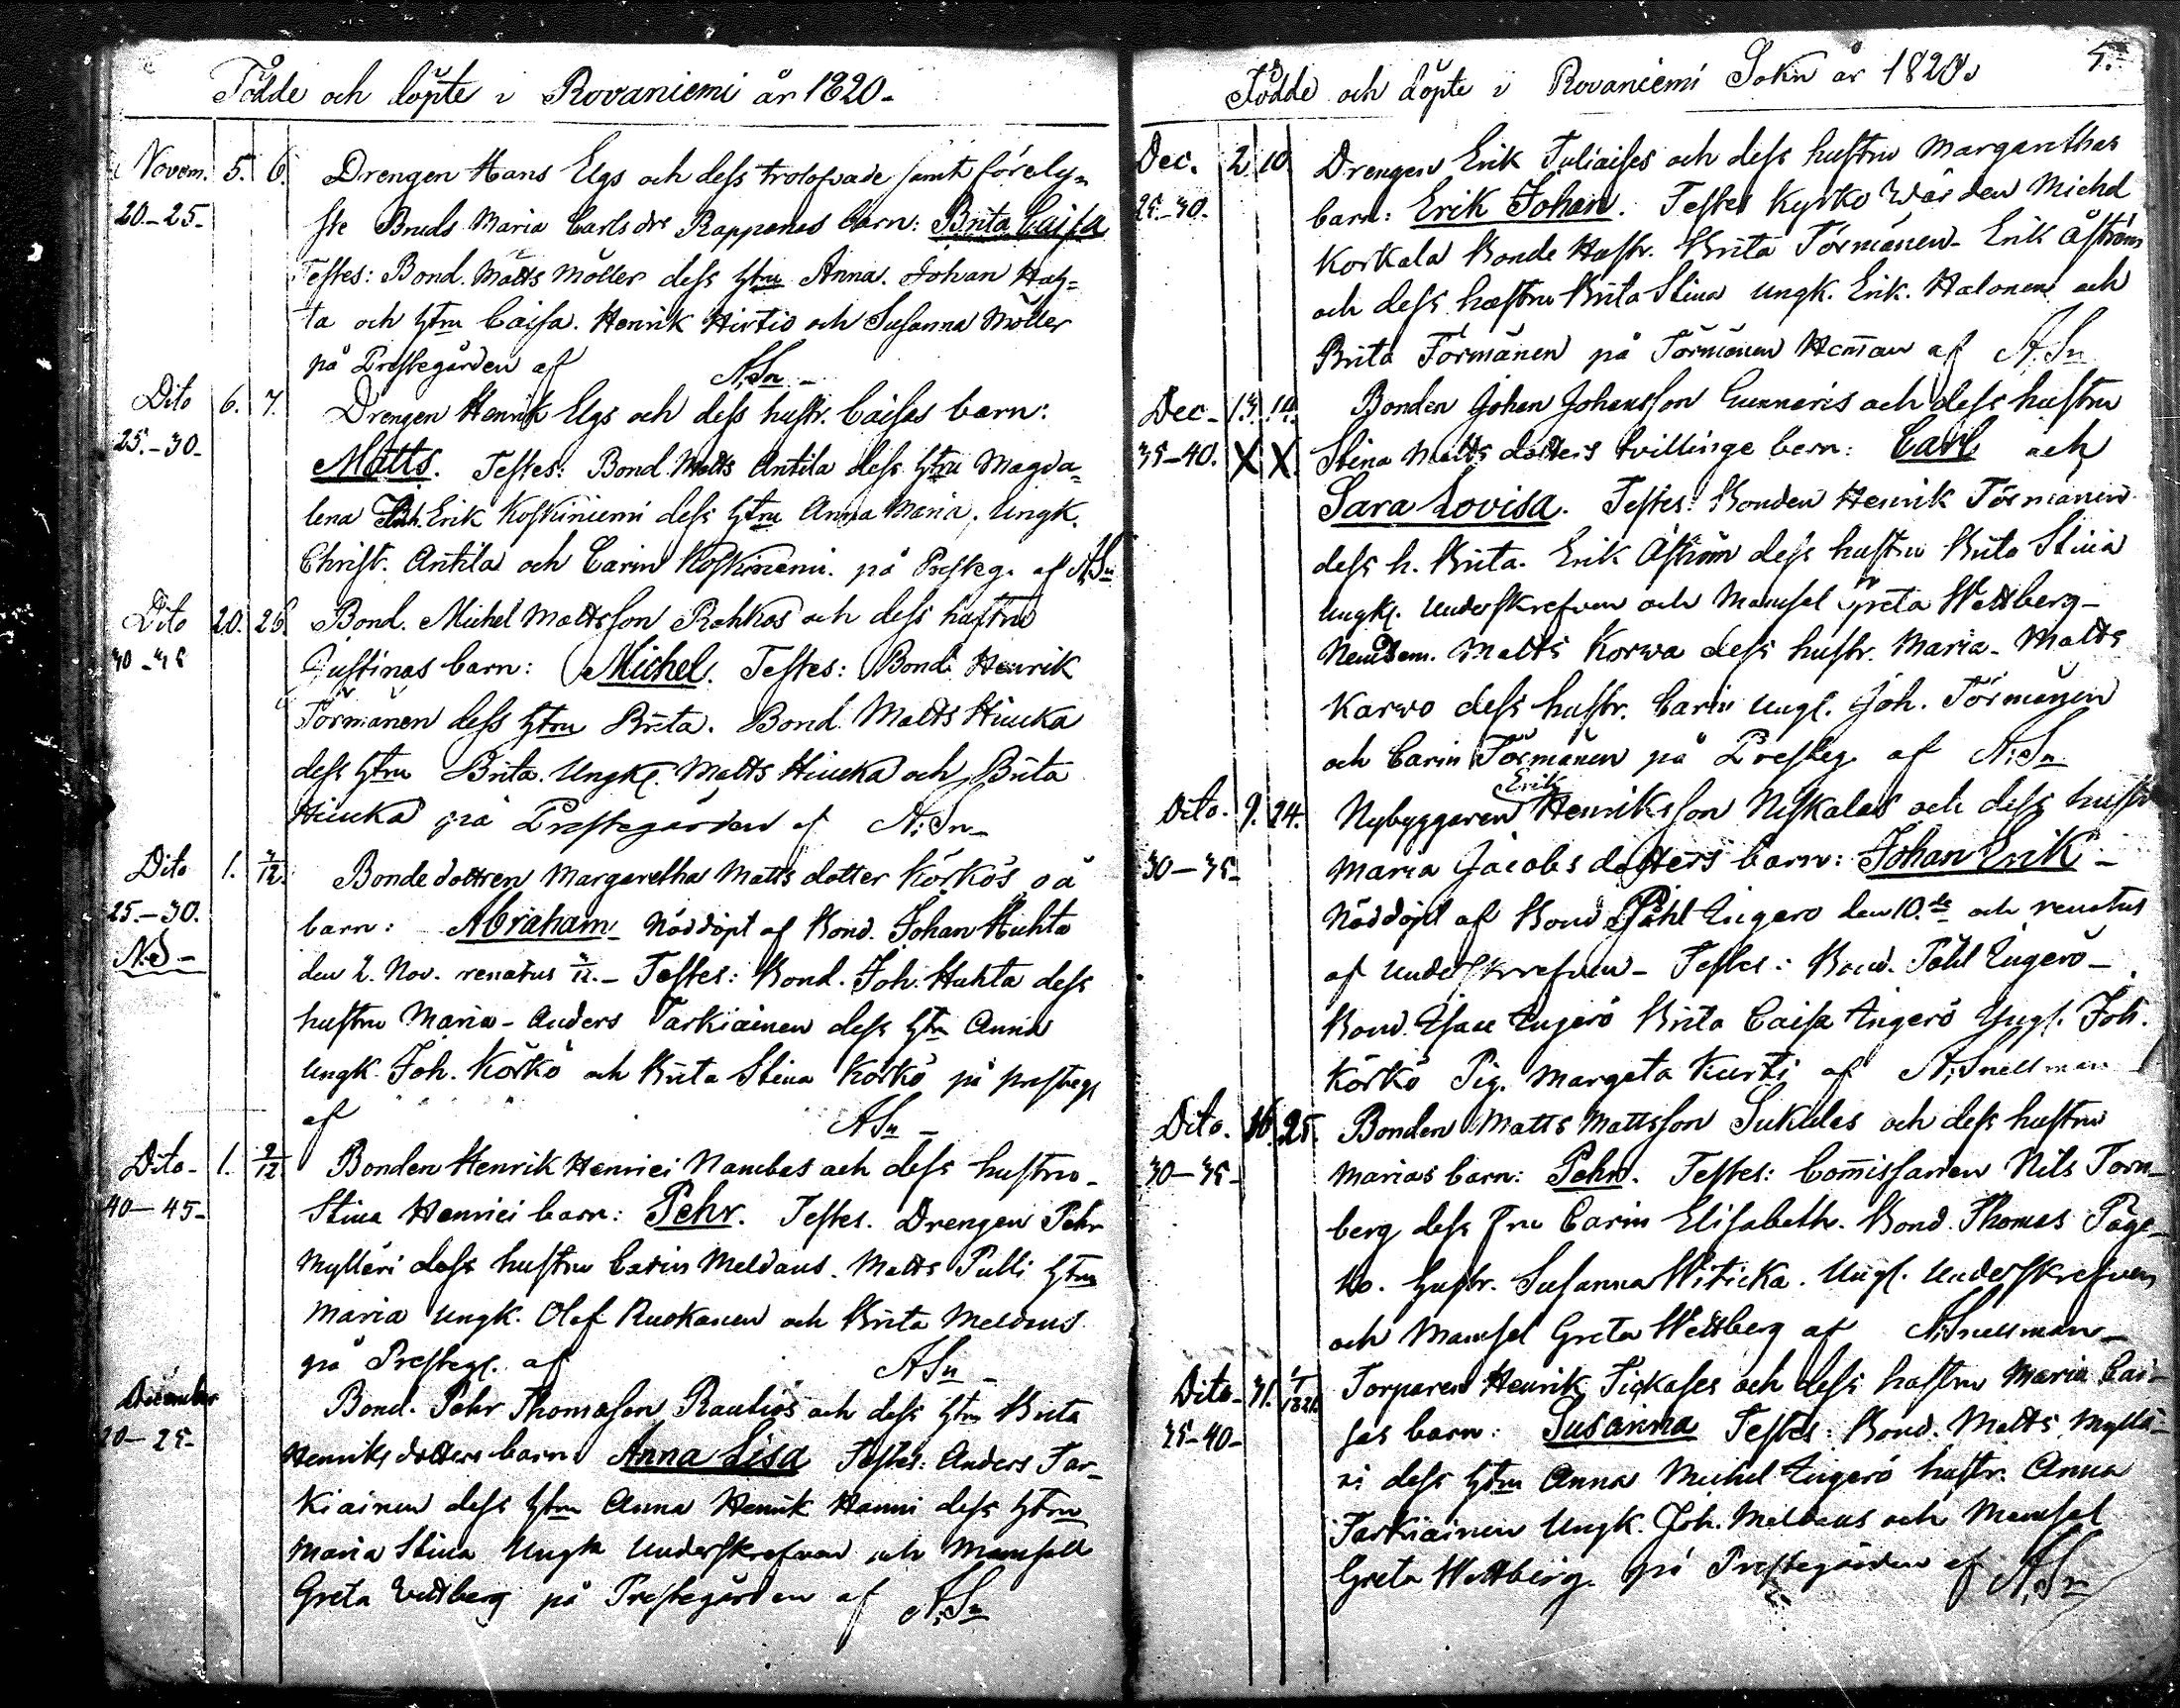 Födde och döpte i Rovaniemi år 1820.
Novem. 5. 6. Drengen Hans Elgs och dess trolofvade samt förely-
20-25- ste Bruds Maria Carlsdr Rappanas barn: Brita Cajsa
Testes: Bond. Matts Möller dess hstru Anna. Johan Hah-
ta och hstru Caisa. Henrik Hirtio och Susanna Möller
på Prestegården af A.Sn-
Dito 6. 7. Drengen Henrik Elgs och dess hustr. Caisas barn:
25.-30- Matts. Testes: Bond. Matts Antila dess hstru Magda-
lena Erik Koskiniemi dess hstru Anna Maria, Ungk.
Christ. Antila och Carin Koskiniemi. på Presteg. af A.Sn
Dito 20. 26. Bond. Michel Mattsson Rohkos och dess hustru
30-35 Justinas barn: Michel. Testes: Bond. Henrik
Törmänen dess hstru Brita. Bond. Matts Hiucka
dess hstru Brita. Ungk. Matts Hiucka och Brita
Hiucka på Prestegården af A.Sn-
Dito 1. 3/12. Bondedottren Margaretha Mattsdotter Körkös oä
25.-30. barn: Abraham. Nöddöpt af Bond. Johan Huhta
N.d- den 2. Nov. renatus 3/12.- Testes: Bond. Joh. Huhta dess
hustru Maria- Anders Tarkiainen dess hstru Anna
Ungk. Joh. Körkö och Brita Stina Körkö på presteg
af A.Sn-
Dito- 1. 9/12 Bonden Henrik Henrici Nambas och dess hustru-
40-45- Stina Henrici barn: Pehr. Testes. Drengen Pehr
Mylläri dess hustru Carin Meldaus. Matts Pulli hstru
Maria Ungk. Olof Ruokanen och Brita Meldaus
på Presteg. af A.Sn-
December Bond. Pehr Thomasson Rautios och dess hstru Brita
20-25- Henriksdotters barn Anna Lisa Testes: Anders Tar-
kiainen dess hstru Anna Henrik Hanni dess hstru
Maria Stina Ungk Underskrefvad och Mamsell
Greta Wettberg på Prestegården af A.Sn
Födde och döpte i Rovaniemi Sokn år 1820. 5.
Dec. 2. 10. Drengen Erik Juliaises och dess hustru Margarethas
25-30. barn: Erik Johan. Testes Kyrko Wärden Michel
Korkala Bonde Hustr. Brita Törmänen- Erik Åström
och dess hustru Brita Stina Ungk. Erik. Halonen och
Brita Törmänen på Törmänen Heman af A.Sn
Dec- 13. 14. Bonden Johan Johansson Gunnaris och dess hustru
35-40. X X Stina Mattsdotters tvillinge barn: Carl och
Sara Lovisa. Testes: Bonden Henrik Törmänen
dess h. Brita. Erik Åström dess hustru Brita Stina
Ungk. Underskrefven och Mamsel Greta Wettberg-
Nembdem. Matts Korva dess hustr. Maria- Matts
Karvo dess hustr. Carin Ungk. Joh. Törmänen
och Carin Törmänen på Presteg. af A.Sn
Erik
Dito. 9. 24. Nybyggaren Henriksson Niskalas och dess hustr
30-35- Maria Jacobsdotters barn: Johan Erik-
Nöddöpt af Bond Påhl Lingero den 10.de och renatus
af underskrefven- Testes: Bond. Påhl Lingerö-
Bond. Isac Lingerö Brita Caisa Lingerö Yngl. Joh.
Körkö Pig. Margeta Kurti af A.Snellman
Dito. 16. 25. Bonden Matts Mattsson Sukulas och dess hustru
30-35- Marias barn: Pehr. Testes: Comissarien Nils Torn-
berg dess Fru Carin Elisabeth. Bond. Thomas
Hustr. Susanna Witicka. Ungl. Underskrefven
och Mamsel Greta Wettberg af A.Snellman-
Dito- 31. 1/1821 Torparen Henrik Tickases och dess hustru Maria Cai-
35-40- sas barn: Susanna Testes: Bond. Matts Myllä-
ri dess hstru Anna Michel Lingerö hustr. Anna
Tarkiainen Ungk. Joh. Meldaus och Mamsel
Greta Wettberg. på Prestegården af A.Sn